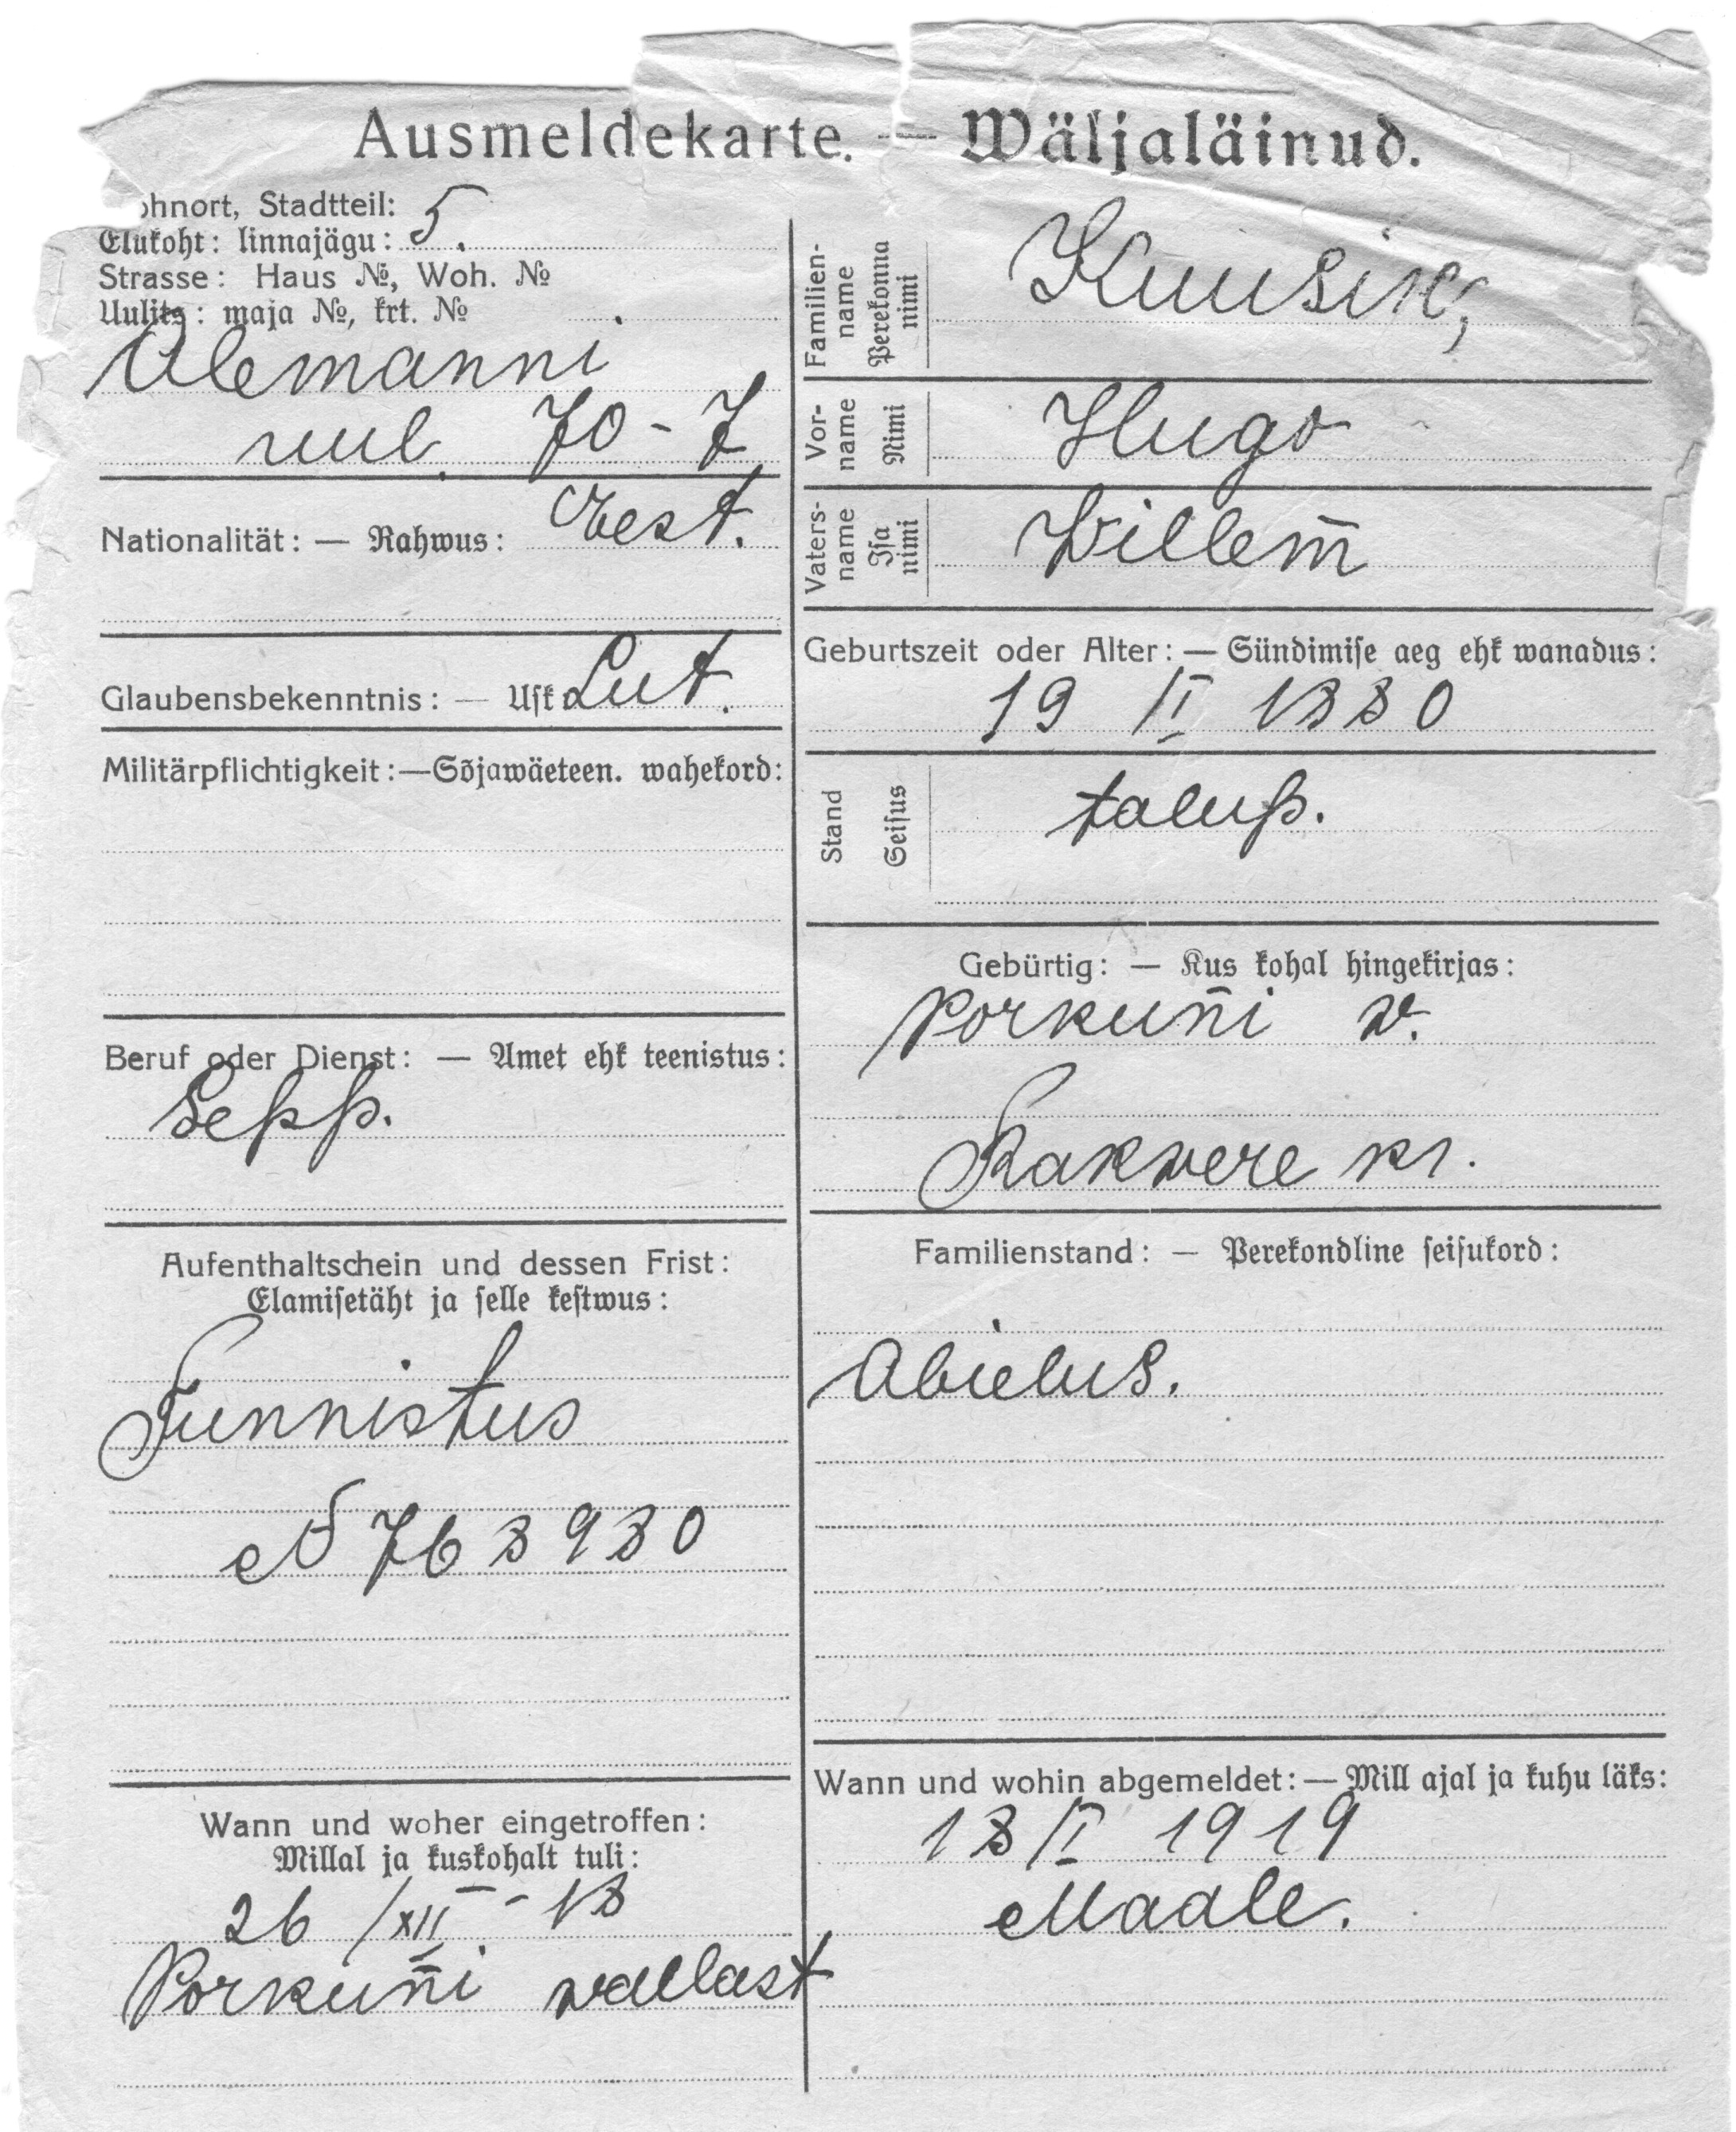 Ausmeldekarte. — Wäljaläinud.
ohnort, Stadtteil: 5.
Elukoht: linnajägu:
Strasse: Haus №, Woh. №
Uulits: maja №, krt. №
Alemanni
uul. 70-7
Nationalität: — Rahwus: Eest.
Glaubensbekenntnis: — Usk Lut.
Militärpflichtigkeit:—Sõjawäeteen. wahekord:
Beruf oder Dienst: — Amet ehk teenistus:
Sepp.
Aufenthaltschein und dessen Frist:
Elamisetäht ja selle kestwus:
Tunnistus
N 768980
Wann und woher eingetroffen:
Millal ja kuskohalt tuli:
26/XII - 18
Porkun̄i wallast
Familien-
name
Perekonna
nimi
Kuusik,
Vor-
name
Nimi
Hugo
Vaters-
name
Isa
nimi
Willem̄
Geburtszeit oder Alter: — Sündimise aeg ehk wanadus:
19 /II 1880
Stand
Seisus
talup.
Gebürtig: — Kus kohal hingekirjas:
Porkun̄i w.
Rakwere kr.
Familienstand: — Perekondline seisukord:
Abielus.
Wann und wohin abgemeldet:—Mill ajal ja kuhu läks:
18/II 1919
Maale.